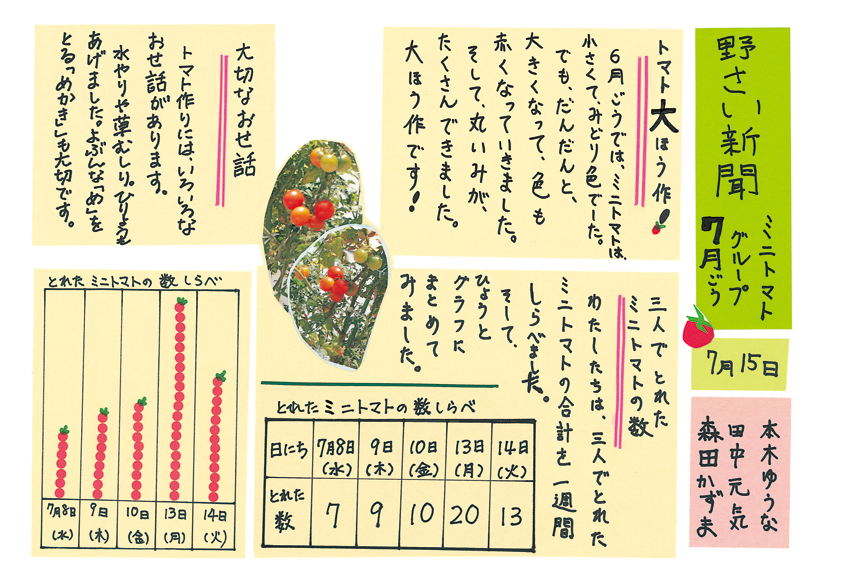 野さい新聞
ミニトマト
グループ
7月ごう
7月15日
本木ゆうな
田中元気
森田かずま
トマト大ほう作!
6月ごうでは、ミニトマトは、
小さくて、みどり色でした。
でも、だんだんと、
大きくなって、色も
赤くなっていきました。
そして、丸いみが、
たくさんできました。
大ほう作です!
大切なおせ話
トマト作りには、いろいろな
おせ話があります。
水やりや草むしり。ひりょうも
あげました。よぶんな「め」を
とる「めかき」も大切です。
三人でとれた
ミニトマトの数
わたしたちは、三人でとれた
ミニトマトの合計を一週間
しらべました。
そして、
ひょうと
グラフに
まとめて
みました。
とれたミニトマトの数しらべ
日にち 7月8日(水) 9日(木) 10日(金) 13日(月) 14日(火)
とれた数 7 9 10 20 13
とれたミニトマトの数しらべ
7月8日(水) 9日(木) 10日(金) 13日(月) 14日(火)